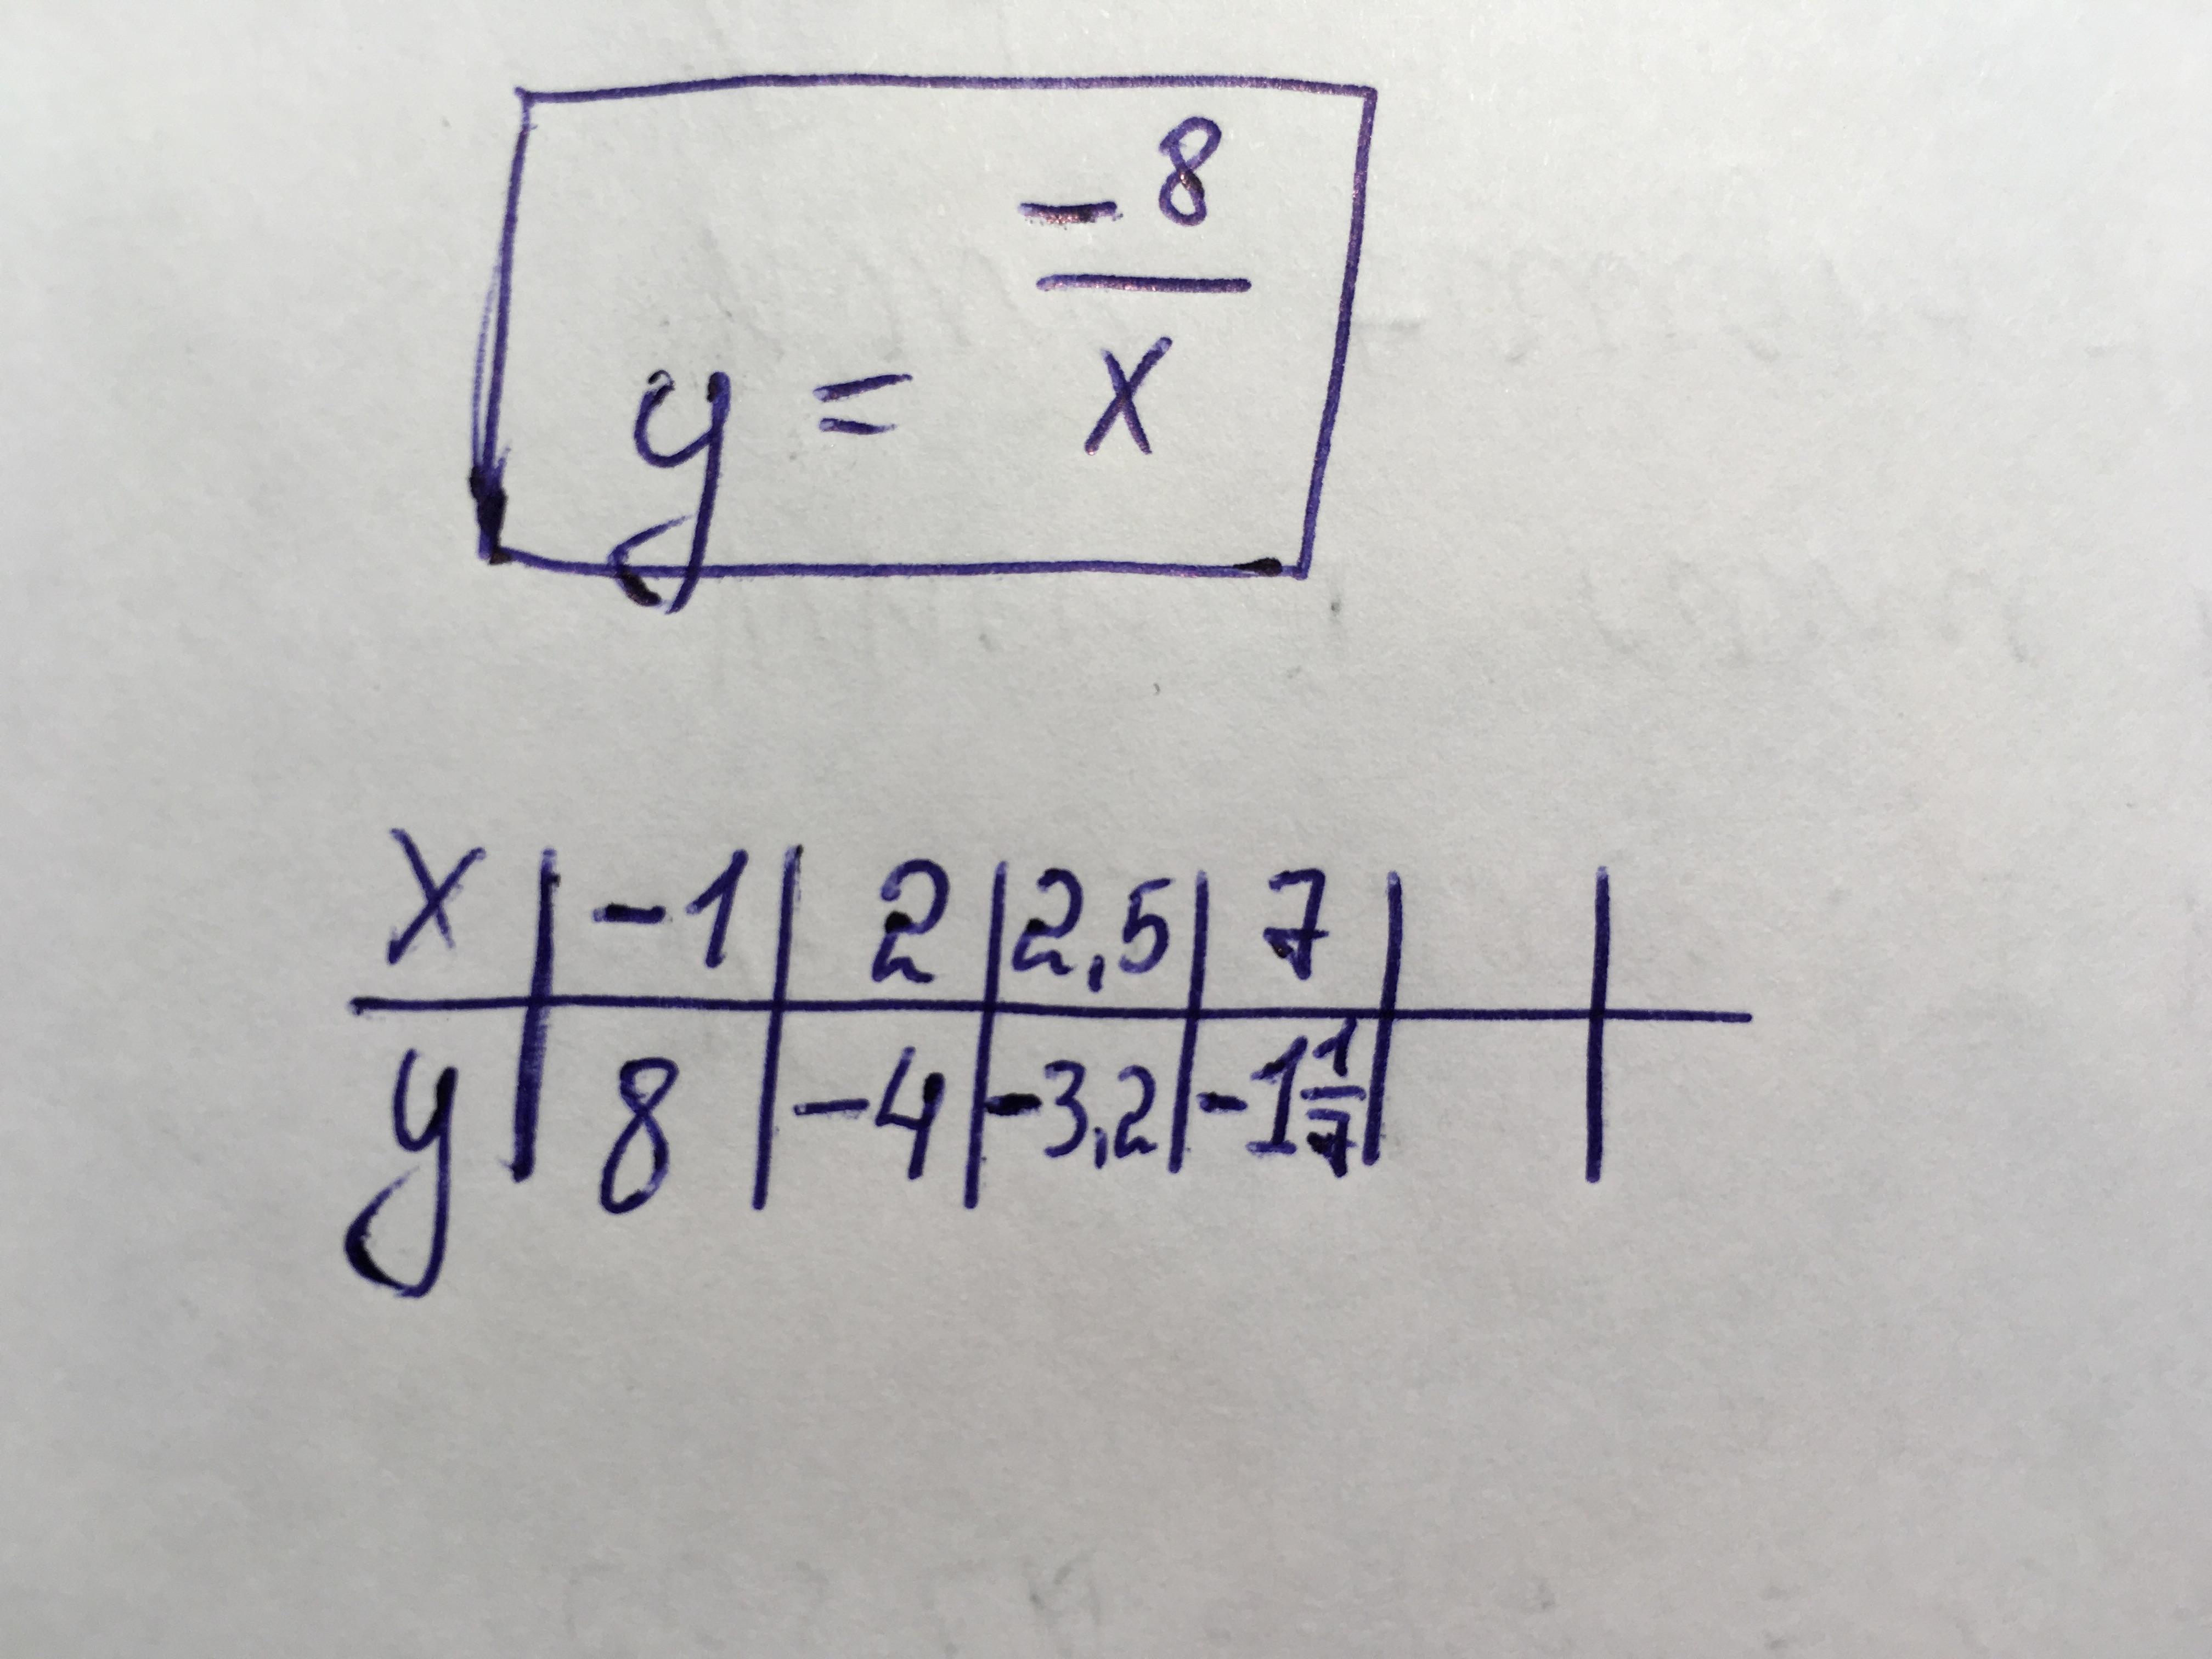 y = -8/x
x | -1 | 2 | 2,5 | 7 | |
y | 8 | -4 | -3,2 | -1 1/7 | |